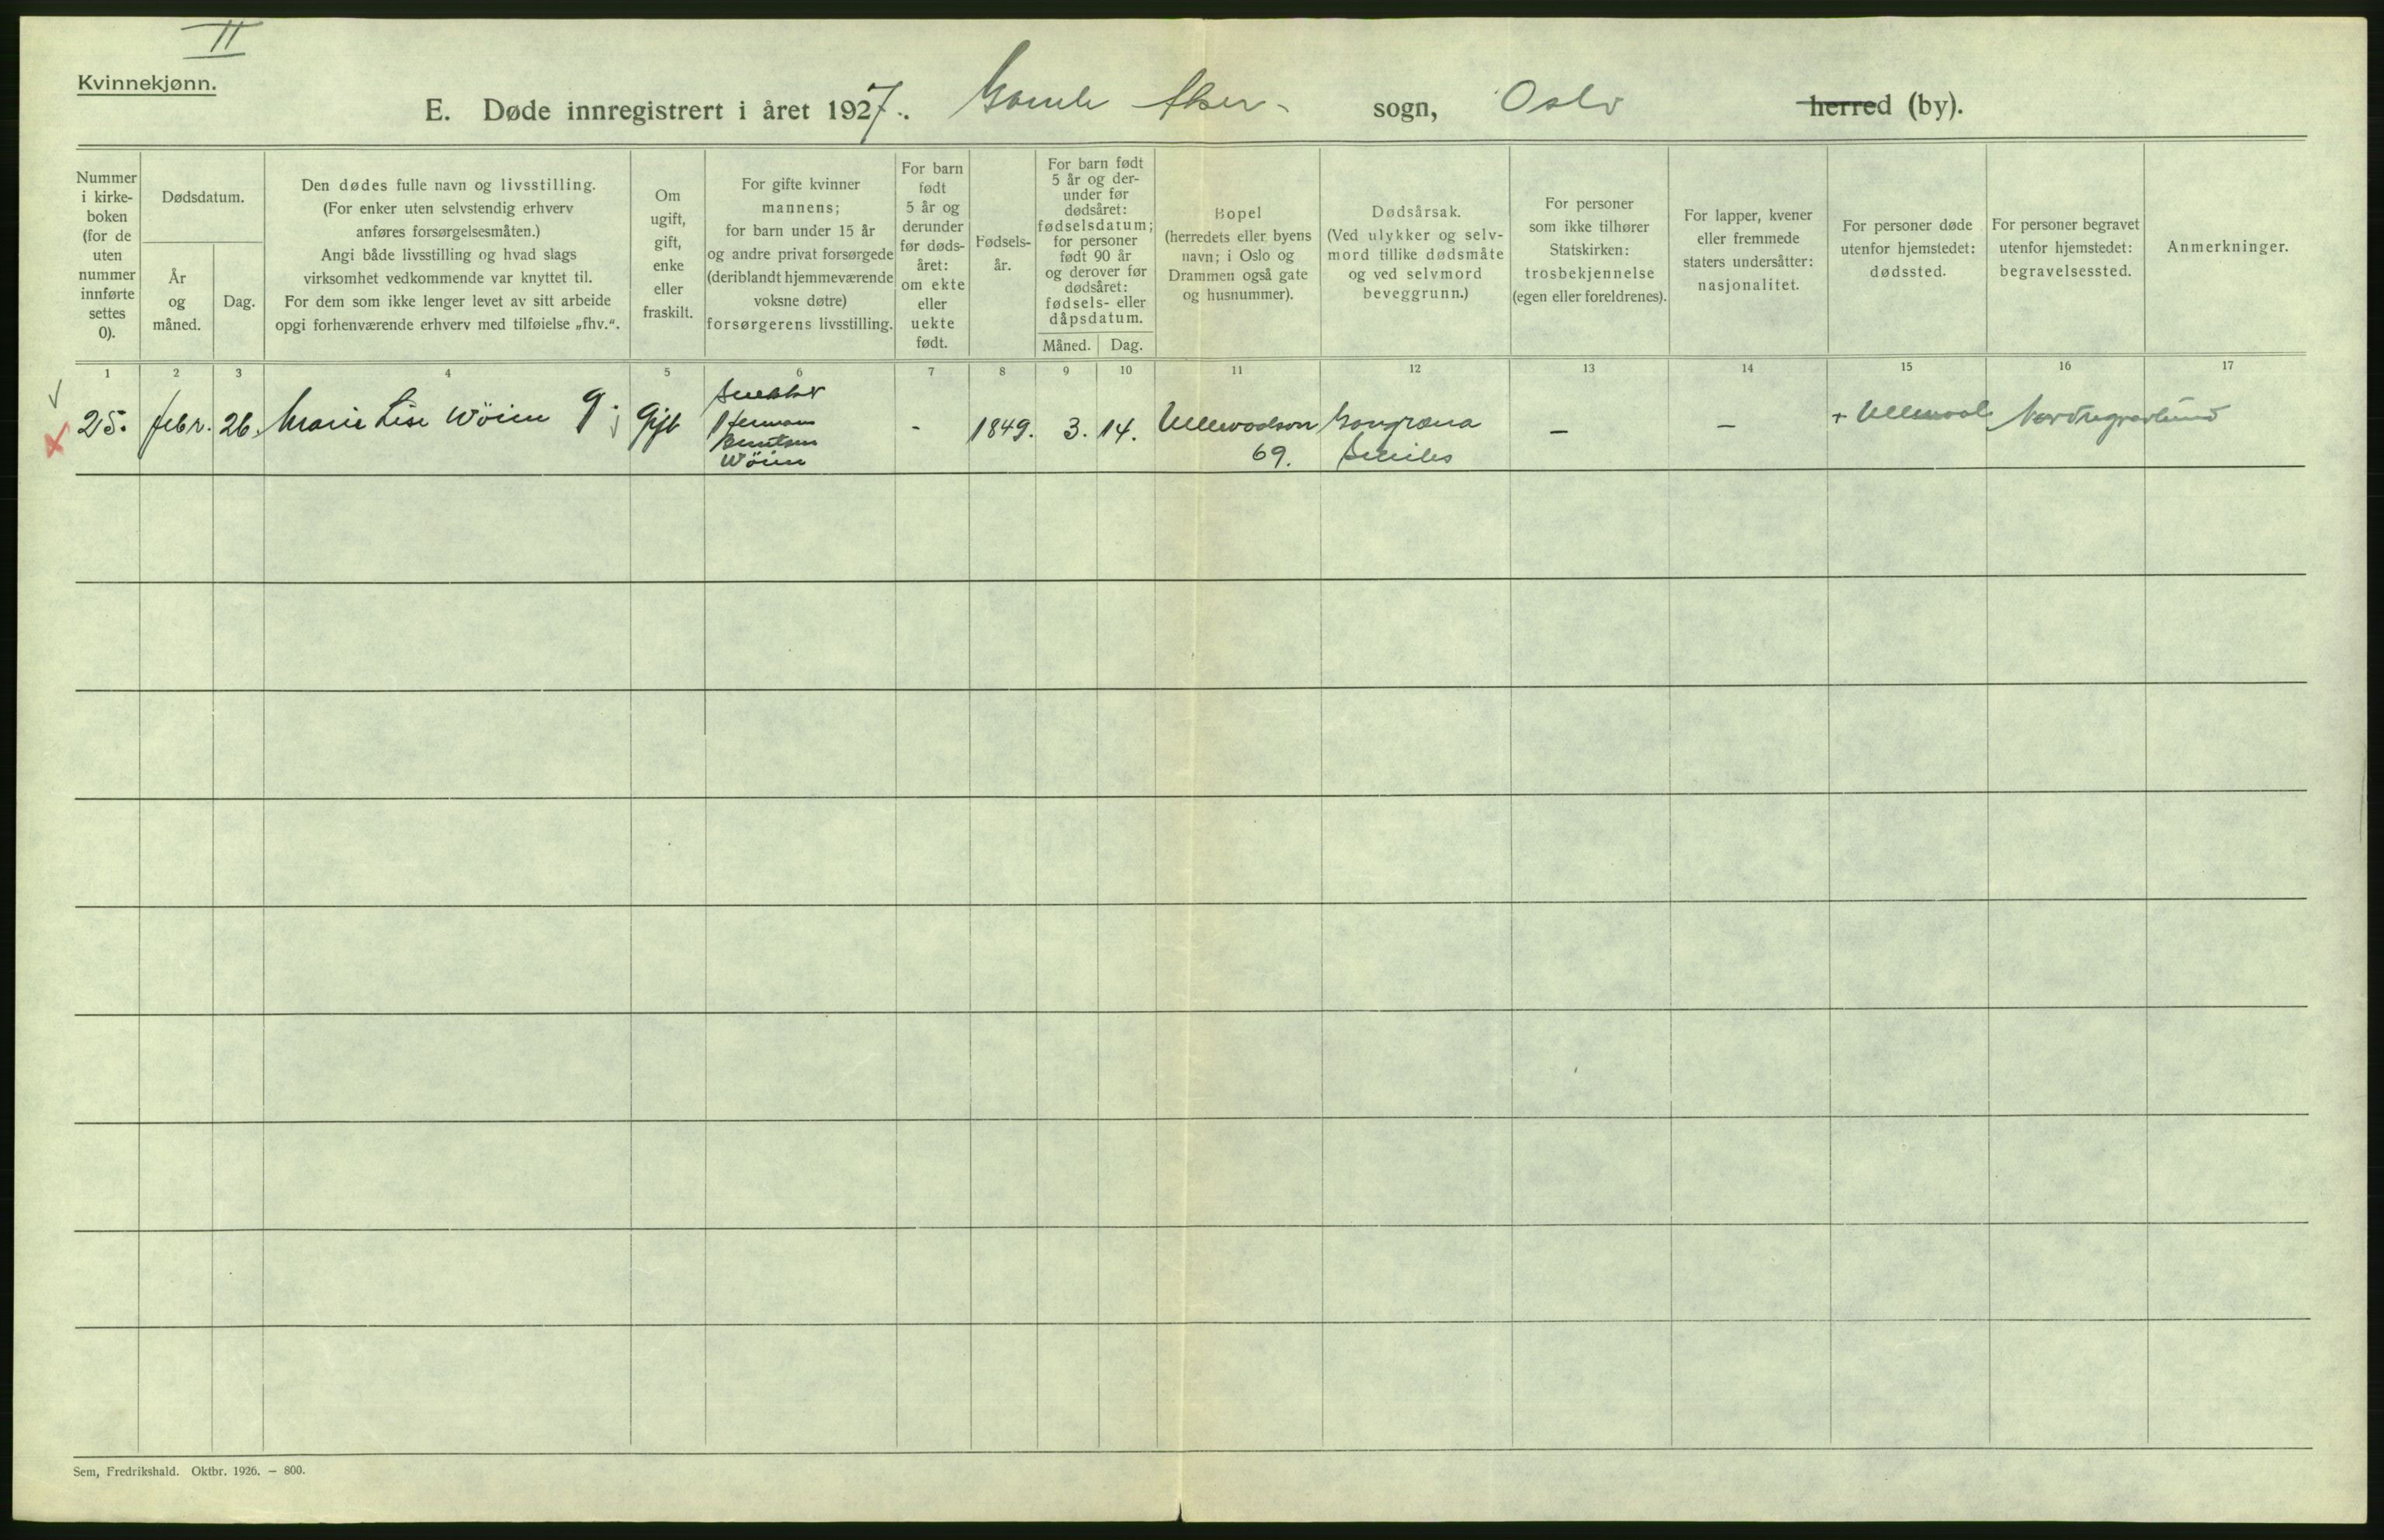 II
Kvinnekjønn.
E. Døde innregistrert i året 1927. Gamle Aker sogn, Oslo herred (by).
Nummer
i kirke-
boken
(for de
uten
nummer
innførte
settes
0).
Dødsdatum.
År
og
måned.
Dag.
Den dødes fulle navn og livsstilling.
(For enker uten selvstendig erhverv
anføres forsørgelsesmåten.)
Angi både livsstilling og hvad slags
virksomhet vedkommende var knyttet til.
For dem som ikke lenger levet av sitt arbeide
opgi forhenværende erhverv med tilføielse „fhv.“.
Om
ugift,
gift,
enke
eller
fraskilt.
For gifte kvinner
mannens;
for barn under 15 år
og andre privat forsørgede
(deriblandt hjemmeværende
voksne døtre)
forsørgerens livsstilling.
For barn
født
5 år og
derunder
før døds-
året:
om ekte
eller
uekte
født.
Fødsels-
år.
For barn født
5 år og der-
under før
dødsåret:
fødselsdatum;
for personer
født 90 år
og derover før
dødsåret:
fødsels- eller
dåpsdatum.
Måned. Dag.
Bopel
(herredets eller byens
navn; i Oslo og
Drammen også gate
og husnummer).
Dødsårsak.
(Ved ulykker og selv-
mord tillike dødsmåte
og ved selvmord
beveggrunn.)
For personer
som ikke tilhører
Statskirken:
trosbekjennelse
(egen eller foreldrenes).
For lapper, kvener
eller fremmede
staters undersåtter:
nasjonalitet.
For personer døde
utenfor hjemstedet:
dødssted.
For personer begravet
utenfor hjemstedet:
begravelsessted.
Anmerkninger.
1 2 3 4 5 6 7 8 9 10 11 12 13 14 15 16 17
25. febr. 26. Marie Lise Wöien g. Gift
Snekker
Herman
Wöien
- 1849. 3. 14.
69.
Gangræna
Senilis
– –
+ Ullevaal Nordregravlund
Sem, Fredrikshald. Oktbr. 1926. — 800.